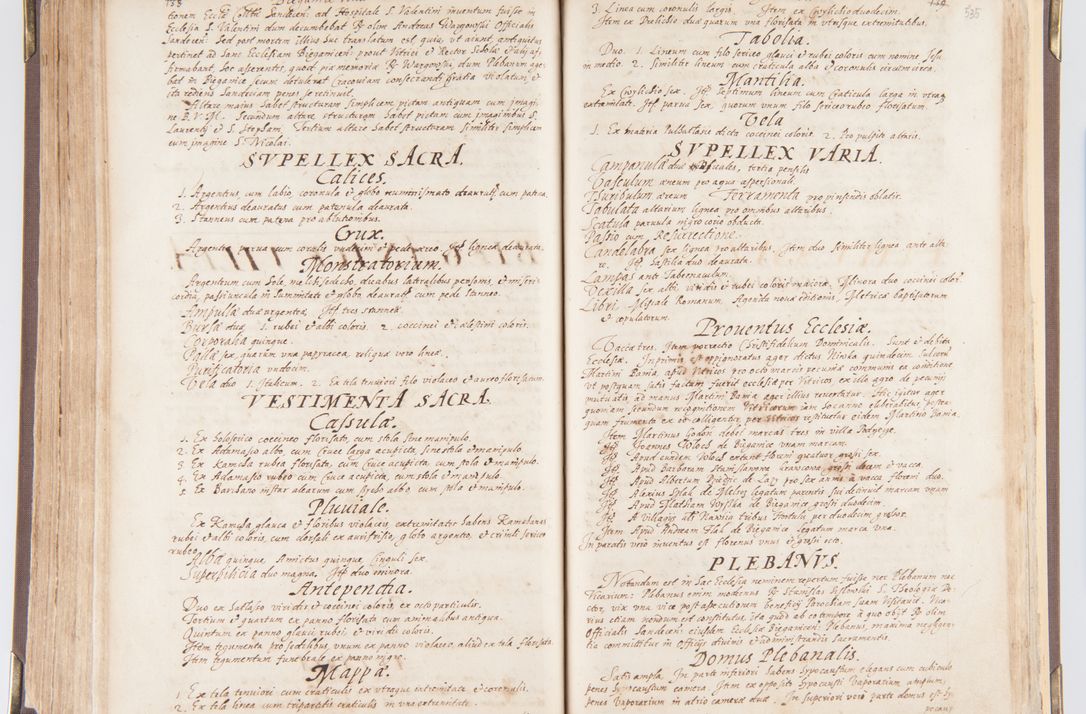 tionem Eccle Colltae Sandecen: ad Hospitale S. Valentini inuentum fuisse in
Ecclesia S. Valentini dum decumbebat olim Andreas Wargowski Officialis
Sandecen: Sed post mortem illius huc translatum est, quia, ut aiunt, antiquitus
pertinet ad hanc Ecclesiam Biegonicen: prout Vitrici et Rector Scholae
firmabant, hoc asserentes, quod pia memoria Wargowski, dum Plebanum age-
bat in Biegonice secum detulerat Cracoviam consecrandi gratia
rediens Sandeciam penes se retinuit.
Altare maius habet structuram simplicem pictam antiquam cum imagi-
ne B. V. M. Secundum altare structuram habet pictam cum imaginibus S.
Laurentij et S. Stephani. Tertium altare habet structuram similiter simplicem
cum imagine S. Nicolai.
SVPELLEX SACRA.
Calices.
1. Argenteus, cum labio, coronula et globo deaurat. cum patena.
2. Argenteus deauratus cum patenula deaurata.
3. Stanneus cum patena pro ablutionibus.
Crux.
Argentea parva cum pede aereo. Itt lignea deaurata.
Monstratorium.
Argenteum cum Sole, melchisedecho, duabus lateralibus pensoriis, et miseri-
cordia, passiuncula in summitate et globo deaurat. cum pede stanneo.
Ampulla duae argenteae, Itt tres stanneae.
Bursa duae 1. rubei et albi coloris. 2. coccinei et caelestini coloris.
Corporalia quinque.
Palla sex, quarum una papyracea, reliquae vero lineae.
Purificatoria undecim.
Vela duo 1. Italicum. 2. Ex tela tenuiori filo violaceo et aureo florisatum.
VESTIMENTA SACRA
Cassula.
1. Ex holoserico coccineo florisato, cum stola sine manipulo.
2. Ex Adamasco albo cum Cruce larga acupicta, sine stola et manipulo.
3 Ex Kamcha rubra florisata, cum Cruce acupicta, cum stola et manipulo.
4. Ex Adamasco rubeo cum Cruce acupicta, cum stola et manipulo.
5. Ex Bardano instar alearum cum albo, cum stola et manipulo.
Pluuiale.
Ex Kamcha glauca et floribus violaceis, extremitates habens Kamchanas
rubei et albi coloris, cum dorsali ex aurifrisio, globo argenteo, et crinili sericeo
rubeo.
Alba quinque, Amictus quinque, Cinguli sex.
Superpillicia duo magna. Itt duo minora.
Antependia.
Duo ex Satlasso viridis et coccinei coloris ex octo particulis.
Tertium et quartum ex panno florisato cum animalibus antiqua.
Quintum ex panno glauci, rubei et viridi coloris.
Item tegumenta pro sedilibus, unum ex panno violaceo, aliud ex tela florisata.
Item tegumentum funebrale ex panno nigro.
Mappa.
1 Ex tela tenuiori cum craticulis ex utraque extremitate et coronulis.
2 Ex tela linea cum tripartitis craticulis in una extremitate.
535
3 Linea cum coronulis largis. Item ex Cwylichio duodecim.
Item ex Prelichio duae quarum una florisata in utrisque extremitatibus.
Tabolia.
Duo. 1. Lineum cum filo sericeo glauci et rubei coloris cum nomine Jesu
in medio. 2. Similiter lineum cum craticula alba et coronulis circumcirca.
Mantilia.
Ex Cwylichio sex. Itt Septimum lineum cum Craticula larga in utraq
extremitate. Itt parva sex, quorum unum filo sericeo rubro florisatum.
Vela
1. Ex materia Pulhatlasie dicta coccinei coloris. 2. Pro pulpito altaris.
SVPELLEX VARIA.
Campanula duae, tertia pensilis
Vasculum aeneum pro aqua aspersionali.
Thuribulum aereum. Ferramenta pro pinsendis oblatis.
Tabulata altarium lignea pro omnibus altaribus.
Scatula parvula nigro corio obducta.
Passio cum Resurrectione.
Candelabra sex lignea pro altaribus. Item duo similiter lignea ante alta-
re. Itt duo deaurata.
Lampas ante Tabernaculum.
Vexilla sex albi viridis et rubei coloris maiora. Minora duo coccinei color.
Libri. Missale Romanum. Agenda novae editionis, Metrica baptisatorum
et copulatorum.
Prouentus Ecclesiae.
Vaccae tres. Item porrectio Christifidelium Dominicalis. Sunt et debita
Ecclesiae. Inprimis est oppignoratus ager dictus Niwka quindecim sulcorum
Martini Bania, apud Vitricos pro octo marcis pecuniae communis ea conditione
ut postquam satis factum fuerit ecclesiae per Vitricos ex illo agro de pecunijs
mutuatis, ad manus Martini Bania ager illius revertatur. Hic igitur ager
quoniam secundum recognitionem Vitricorum iam hoc anno elaborabitur, postea-
quam frumenta ex eo colligentur per Vitricos restituetur eidem Martino Bania.
Item Martinus Godon debet marcas tres in villa
Itt Joannes Wloch de Biegonice unam marcam.
Itt Apud eundem Wloch extant floreni quatuor grossi sex.
Itt Apud Barbaram Stanislaowa grossi decem et vacca.
Itt Apud Albertum de Lazy pro sex annis à vacca floreni duo.
Itt Alexius de legatum parentis sui detinuit marcam unam
Itt Apud Matthiam de Biegonice grossi duodecim.
Itt A villagio tribus Hortulis per duodecim, grossos.
Item Apud Andream Flak de Biegonice legatum marca una.
In paratis vero inventus est florenus unus et grossi octo.
PLEBANVS.
Notandum est in hac Ecclesia neminem repertum fuisse nec Plebanum nec
Vicarium: Plebanus enim modernus Stanislaus S. Theologiae Do-
ctor, vix una vice post assecutionem beneficij Parochiam suam visitavit. Vica-
rius etiam nondum est constitutus, ita quod ab eo tempore à quo obijt olim
Officialis Sandecen: eiusdem Ecclesiae Biegonicen: Plebanus, maxima negligen-
tia committitur in officijs divinis et administrandis Sacramentis.
Domus Plebanalis.
Satis ampla. In parte inferiori habens hypocaustum elegans cum cubiculo
penes hypocaustum camera Item ex opposito hypocausti Vaporarium antiquum,
penes Vaporarium in atrio camerae duae. In superiori vero parte domus est hy-
pocaus